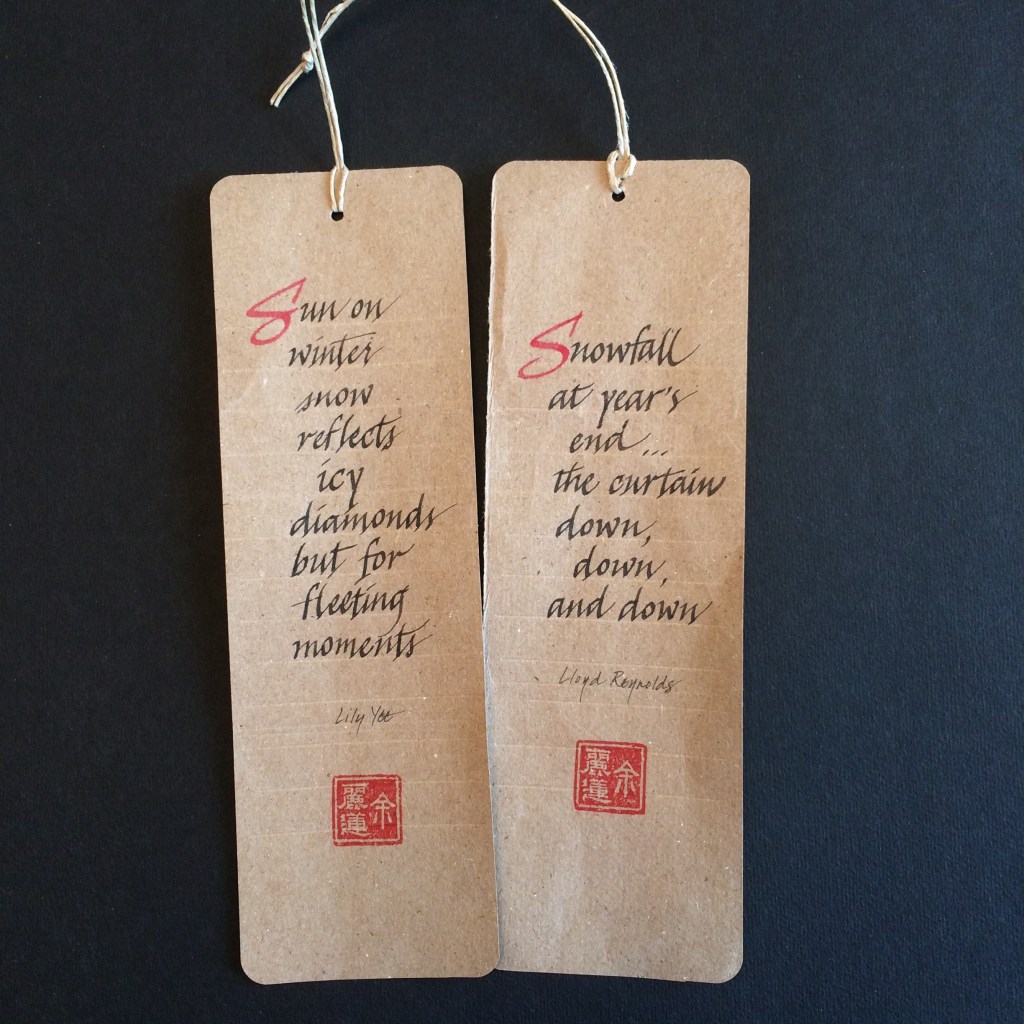 Sun on
winter
snow
reflects
icy
diamonds
but for
fleeting
moments
Lily Yee
余
麗蓮
Snowfall
at year's
end...
the curtain
down,
down,
and down
Lloyd Reynolds
余
麗蓮